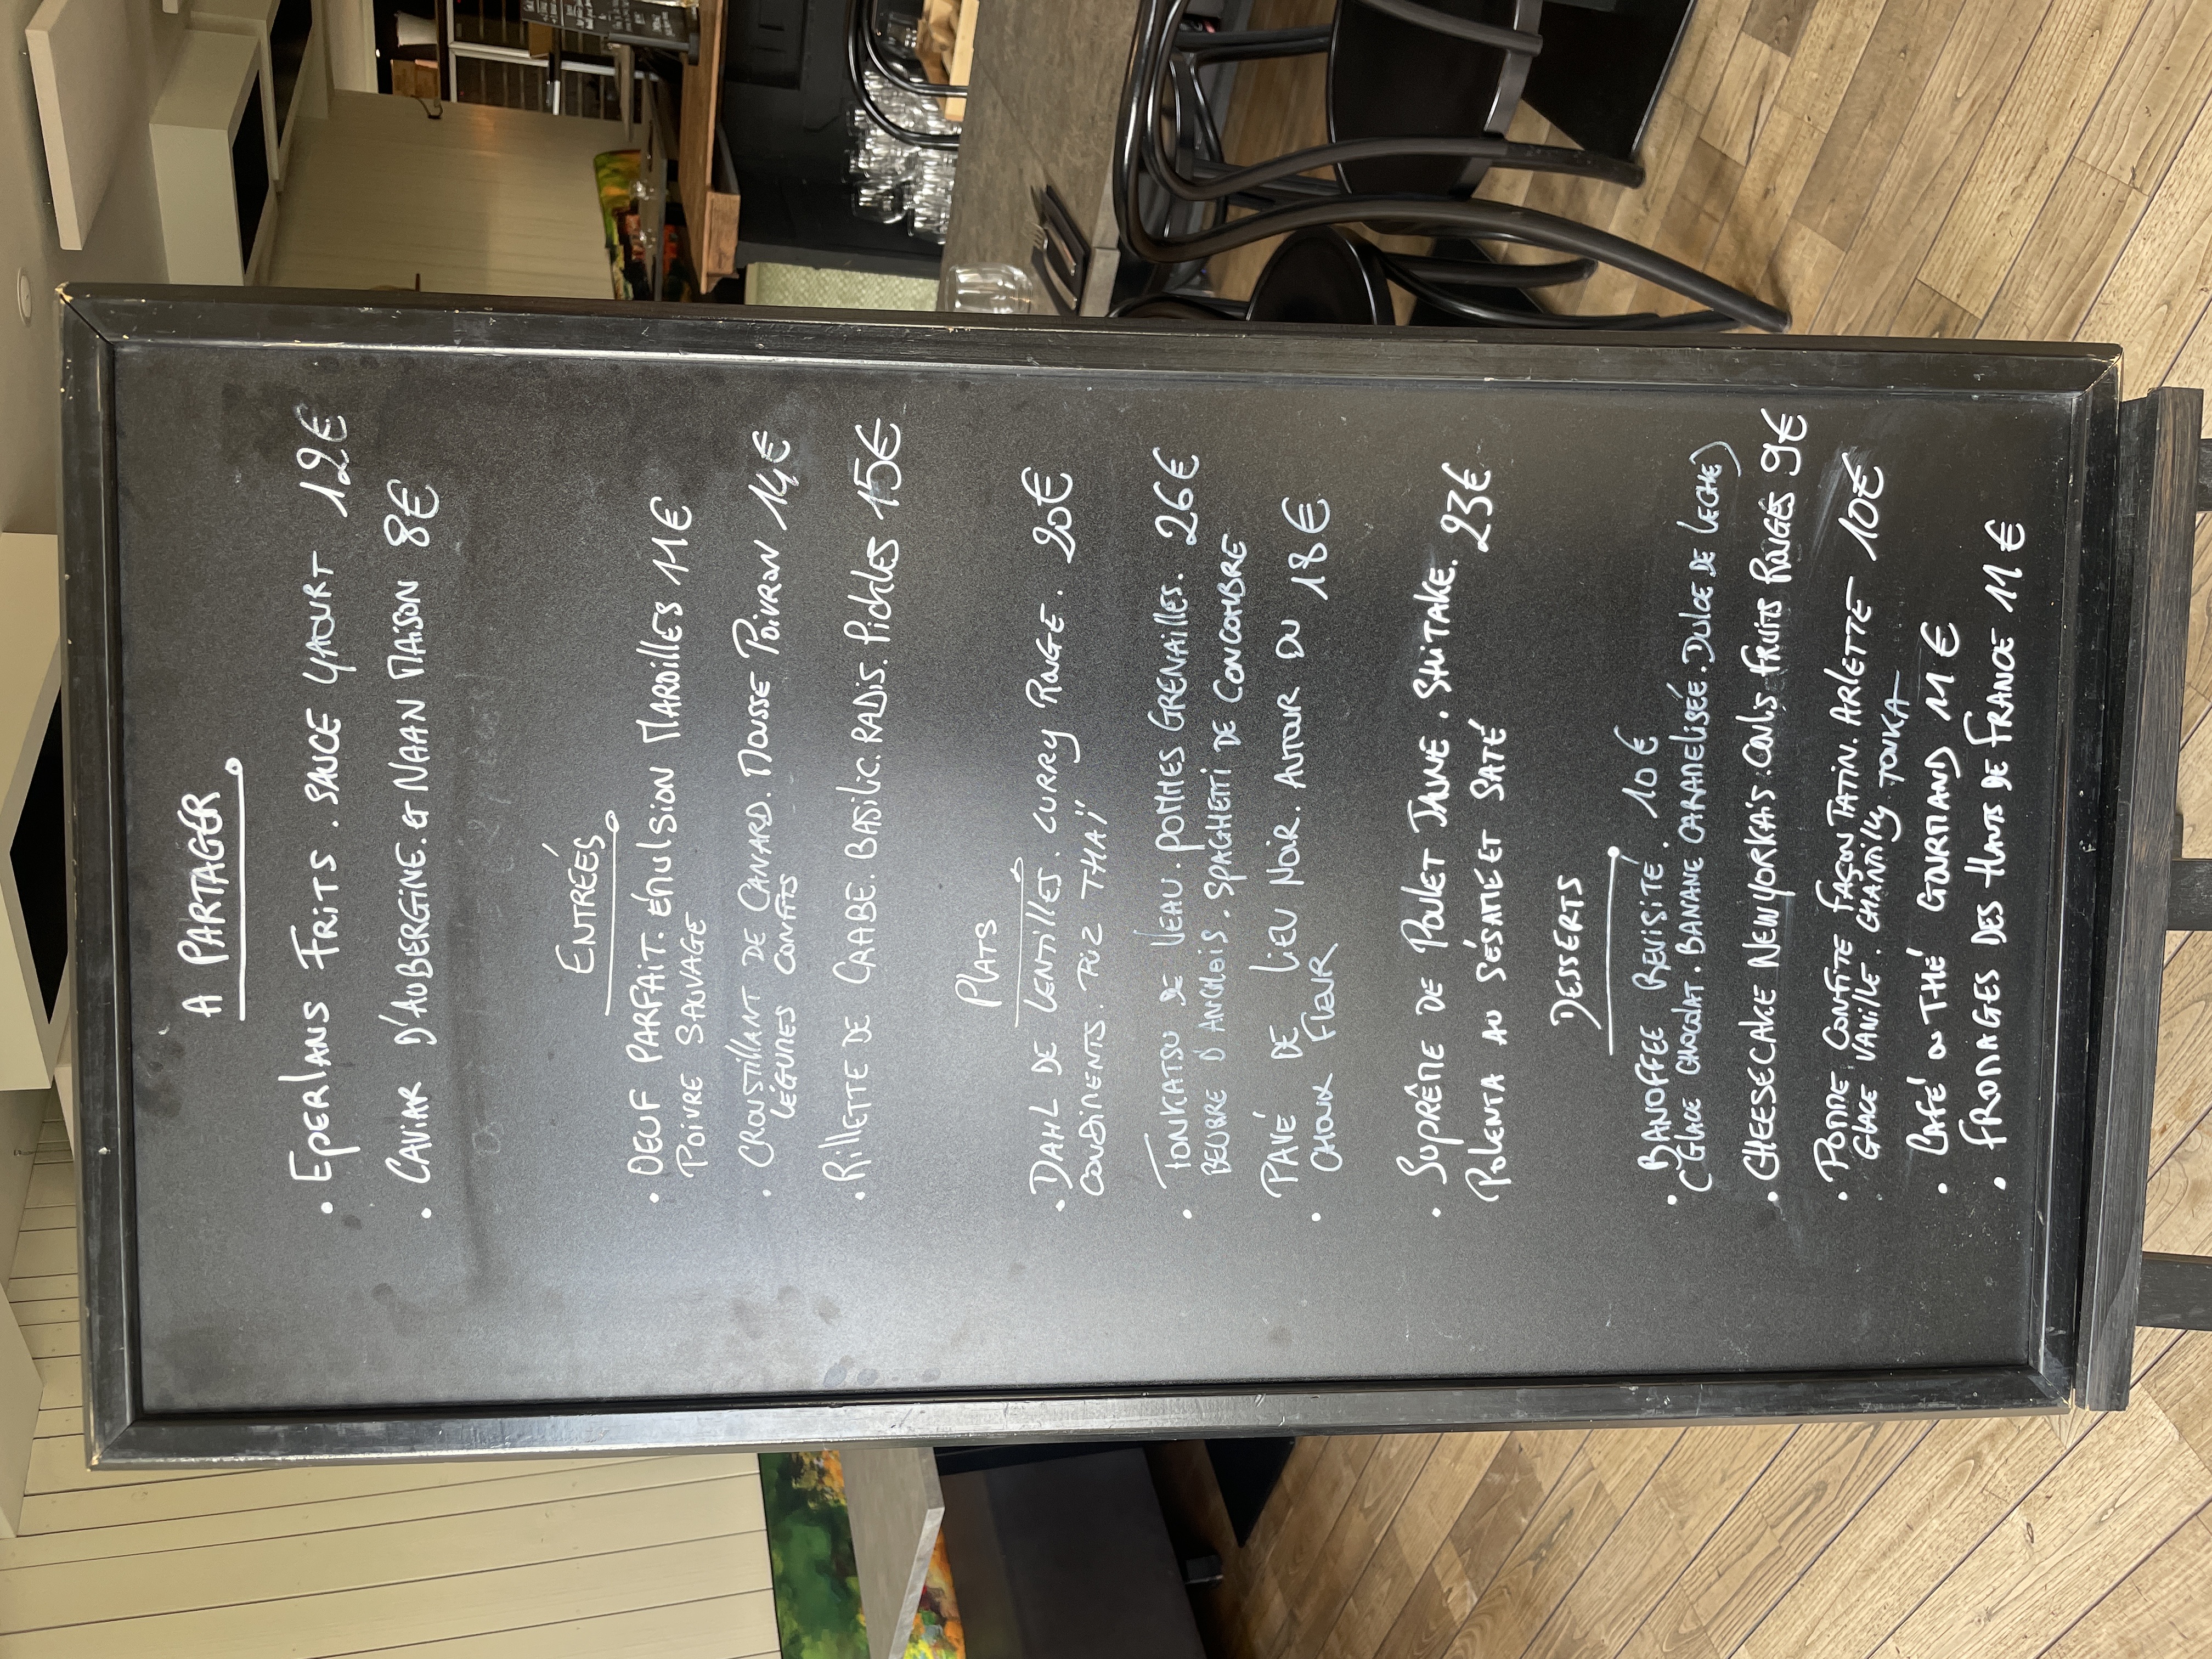 A PARTAGER
• EPERLANS FRITS. SAUCE YAOURT 12€
• CAVIAR D'AUBERGINE. ET NAAN MAISON 8€
ENTRÉES
• OEUF PARFAIT. ÉMULSION MAROILLES 11€
POIVRE SAUVAGE
• CROUSTILLANT DE CANARD. MOUSSE POIVRON 14€
LÉGUMES CONFITS
• RILLETTE DE CRABE. BASILIC. RADIS. PICKLES 15€
PLATS
• DAHL DE LENTILLES. CURRY ROUGE. 20€
CONDIMENTS. RIZ THAÏ
• TONKATSU DE VEAU. POMMES GRENAILLES. 26€
BEURRE D'ANCHOIS. SPAGHETTI DE CONCOMBRE
• PAVÉ DE LIEU NOIR. AUTOUR DU 18€
CHOUX FLEUR
• SUPRÊME DE POULET JAUNE. SHITAKE. 23€
POLENTA AU SÉSAME ET SATÉ
DESSERTS
• BANOFFEE REVISITÉ. 10€
(GLACE CHOCOLAT. BANANE CARAMELISÉE. DULCE DE LECHE)
• CHEESECAKE NEWYORKAIS: COULS FRUITS ROUGES 9€
• POMME CONFITE FAÇON TATIN. ARLETTE 10€
GLACE VANILLE. CHANTILLY TONKA
• CAFÉ OU THÉ GOURMAND 11€
• FROMAGES DES HAUTS DE FRANCE 11€